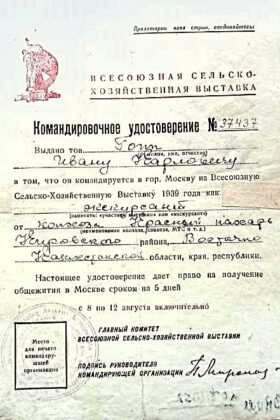 Пролетарии всех стран, соединяйтесь
ВСЕСОЮЗНАЯ СЕЛЬСКО-
ХОЗЯЙСТВЕННАЯ ВЫСТАВКА
Командировочное удостоверение № 37437
Выдано тов.
(фамилия, имя, отчество)
Ивану Карловичу
в том, что он командируется в гор. Москву на Всесоюзную
Сельско-Хозяйственную Выставку 1939 года как
экскурсант
(написать: участник выставки или экскурсант)
от Колхоза Красный пахарь
(наименование колхоза, совхоза, МТС и т. д.)
Кировского района, Восточно
Казахстанской области, края, республики.
Настоящее удостоверение дает право на получение
общежития в Москве сроком на 5 дней
с 8 по 12 августа включительно
ГЛАВНЫЙ КОМИТЕТ
ВСЕСОЮЗНОЙ СЕЛЬСКО-ХОЗЯЙСТВЕННОЙ ВЫСТАВКИ
Место
для печати
командиру-
ющей
организации
ПОДПИСЬ РУКОВОДИТЕЛЯ
КОМАНДИРУЮЩЕЙ ОРГАНИЗАЦИИ